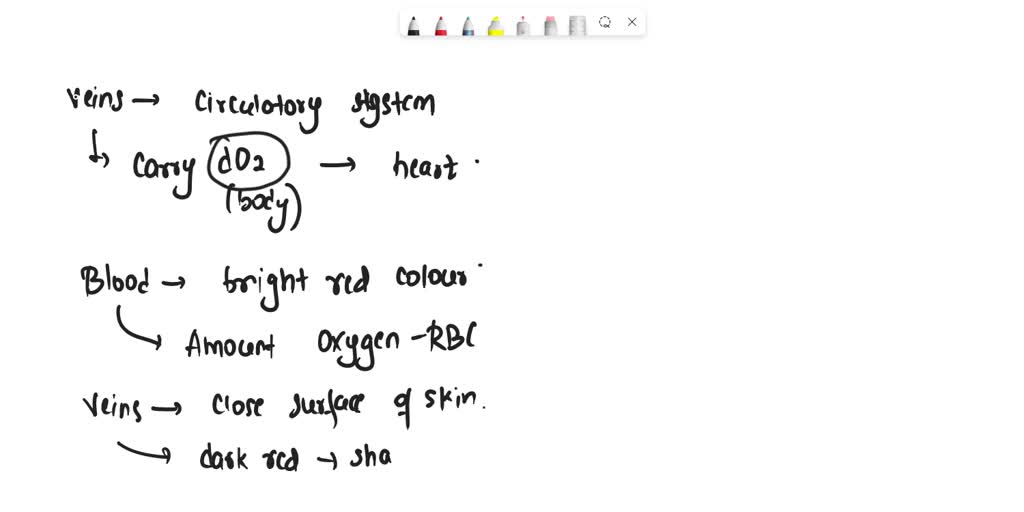 Veins → circulatory system
↳ carry dO2 → heart.
(body)
Blood → bright red colour.
Amount oxygen - RBC
Veins → close surface of skin.
dark red → sha